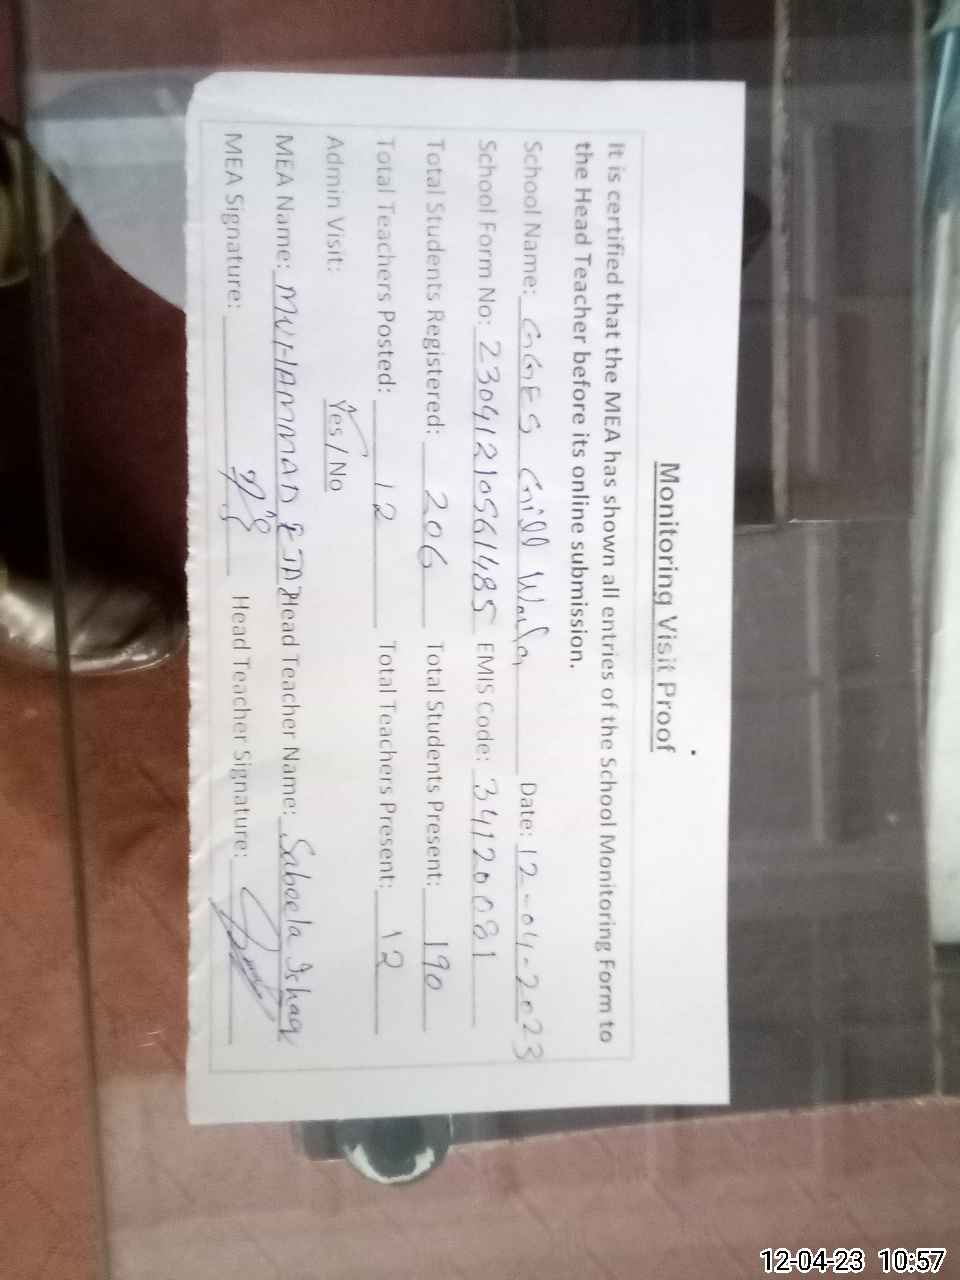 Monitoring Visit Proof
It is certified that the MEA has shown all entries of the School Monitoring Form to
the Head Teacher before its online submission.
School Name: GGES Gill Wala Date: 12-04-2023
School Form No: 23041210561485 EMIS Code: 34120081
Total Students Registered: 206 Total Students Present: 190
Total Teachers Posted: 12 Total Teachers Present: 12
Admin Visit: Yes / No
MEA Name: MUHAMMAD Head Teacher Name: Sabeela Ishaq
MEA Signature: Head Teacher Signature:
12-04-23 10:57